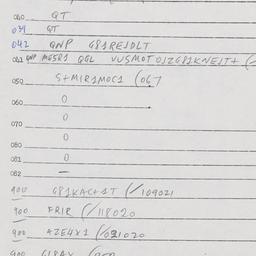 040 QT
039 QT
042 QNP G81REJDLT
041 QNP MG5R1 QGL VUSMOTOJZG81KNEJT+ (
050 S+MIR1MOC1 (067
060 0
070 0
0
080 0
081 0
082 —
900 G81KAC+1T (/109021
900 FRIR (/118020
900 AZE4X1 (/021020
900 G18AX